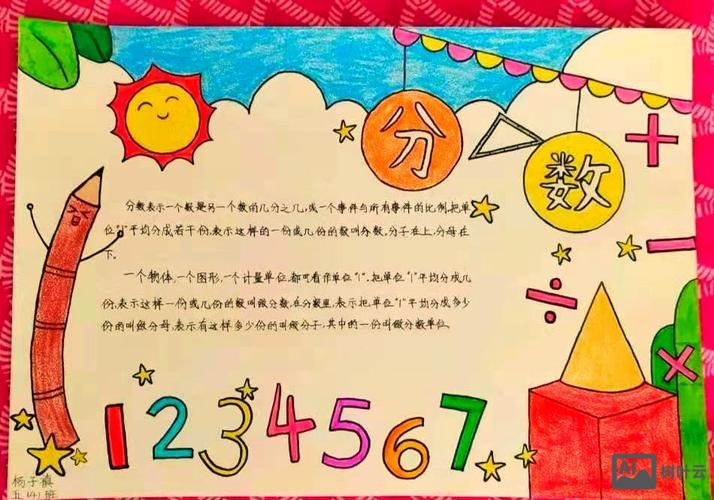 分数
分数表示一个数是另一个数的几分之几,或一个事件与所有事件的比例.把单
位"1"平均分成若干份,表示这样的一份或几份的数叫分数.分子在上,分母在
下。
一个物体,一个图形,一个计量单位,都可看作单位"1".把单位"1"平均分成几
份,表示这样一份或几份的数叫做分数,在分数里,表示把单位"1"平均分成多少
份的叫做分母,表示有这样多少份的叫做分子,其中的一份叫做分数单位.
+
−
÷
×
1234567
杨子禛
五(4)班
树叶云